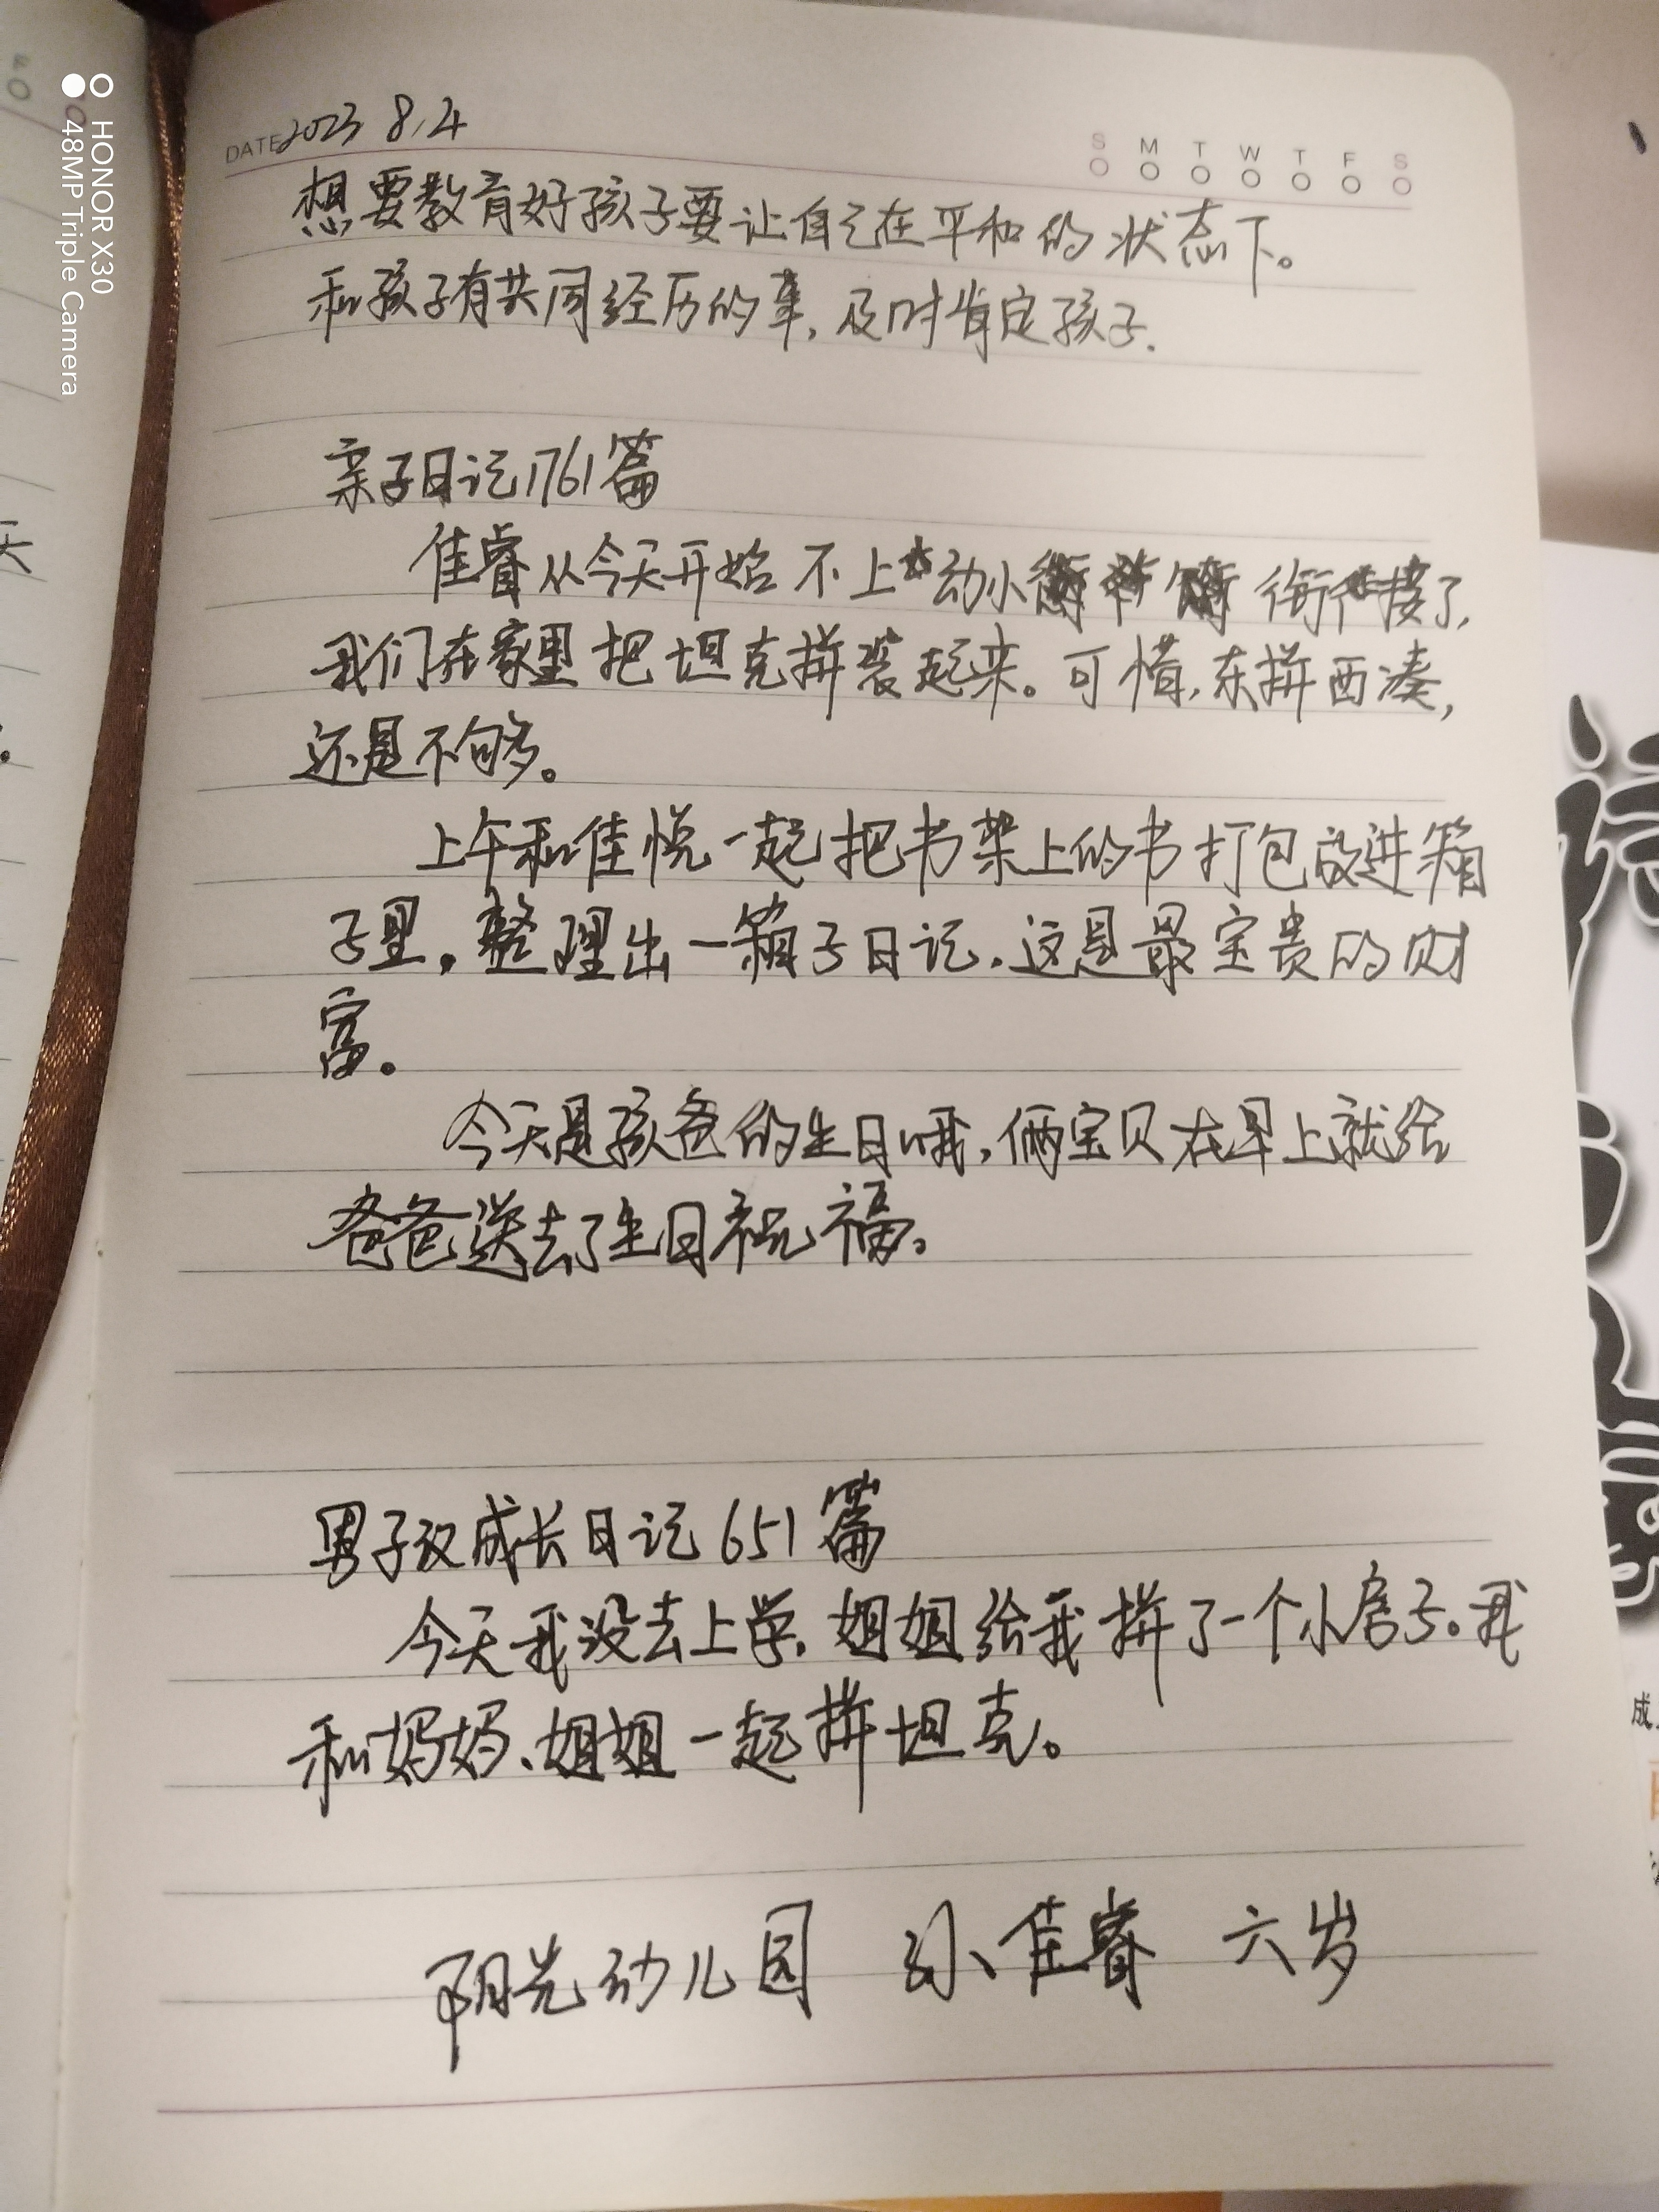 HONOR X30
48MP Triple Camera
DATE 2023 8.4
S M T W T F S
想要教育好孩子要让自己在平和的状态下。
和孩子有共同经历的事,及时肯定孩子.
亲子日记1761篇
佳睿从今天开始不上幼小衔接了,
我们在家里把坦克拼装起来。可惜,东拼西凑,
还是不够。
上午和佳悦一起把书架上的书打包放进箱
子里,整理出一箱子日记.这是最宝贵的财
富。
今天是孩爸的生日哦,俩宝贝在早上就给
爸爸送去了生日祝福。
男子汉成长日记651篇
今天我没去上学,姐姐给我拼了一个小房子。我
和妈妈、姐姐一起拼坦克。
阳光幼儿园 孙佳睿 六岁
天
成